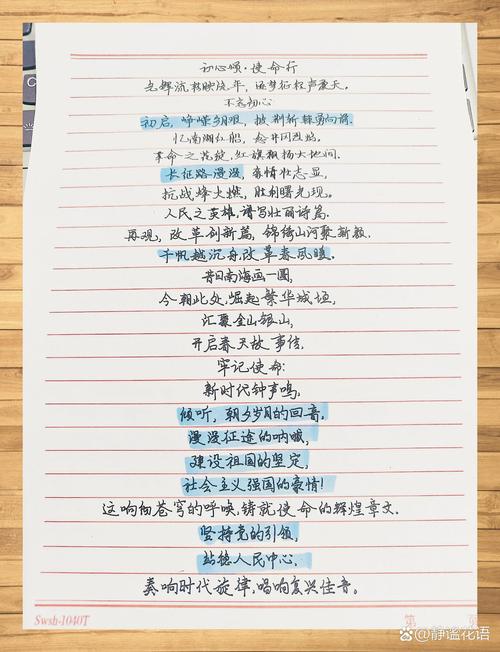 初心颂·使命行
光辉流转映流年，逐梦征程声震天。
不忘初心
初启，峥嵘明眼，披荆斩棘勇向前。
忆南湖红船，
革命之花绽，红旗飘扬大地间。
长征路漫漫，豪情壮志显，
抗战烽火燃，胜利曙光现。
人民之英雄，谱写壮丽诗篇，
再观，改革创新篇，锦绣山河聚新颜。
千帆越沉舟，改革春风暖。
昔日南海画一圆，
今朝此处，崛起繁华城垣，
汇聚金山银山，
开启春天故事传。
牢记使命：
新时代钟声鸣，
倾听，朝夕岁月的回音。
漫漫征途的呐喊，
建设祖国的坚定，
社会主义强国的豪情！
这响彻苍穹的呼唤，铸就使命的辉煌章文。
坚持党的引领，
站稳人民中心，
奏响时代旋律，唱响复兴佳音。
Swsh-1040T
第 页
头条@静谧花语